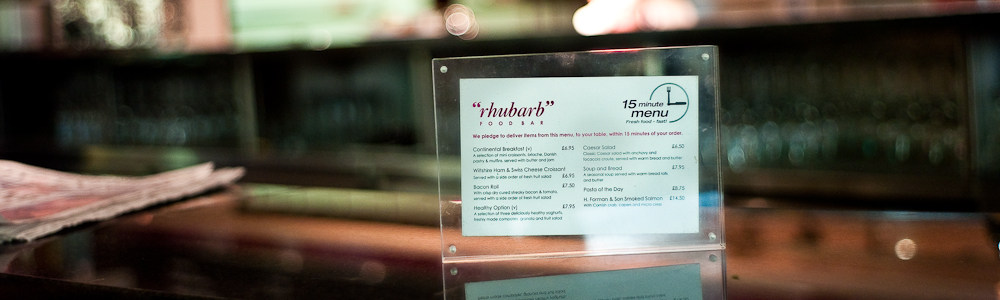 “rhubarb”
FOOD BAR
15 minute
menu
Fresh food - fast!
We pledge to deliver items from this menu, to your table, within 15 minutes of your order.
Continental Breakfast (v) £6.95
A selection of mini croissants, brioche, Danish
pastry & muffins, served with butter and jam
Wiltshire Ham & Swiss Cheese Croissant
Served with a side order of fresh fruit salad £6.95
Bacon Roll £7.50
With crisp dry cured streaky bacon & tomato,
served with a side order of fresh fruit salad
Healthy Option (v) £7.95
A selection of three deliciously healthy yoghurts,
freshly made compote, granola and fruit salad
Caesar Salad £6.50
Classic Caesar salad with anchovy and
croute, served with warm bread and butter
Soup and Bread £7.95
A seasonal soup served with warm bread rolls
and butter
Pasta of the Day £8.75
H. Forman & Son Smoked Salmon £14.50
With capers and